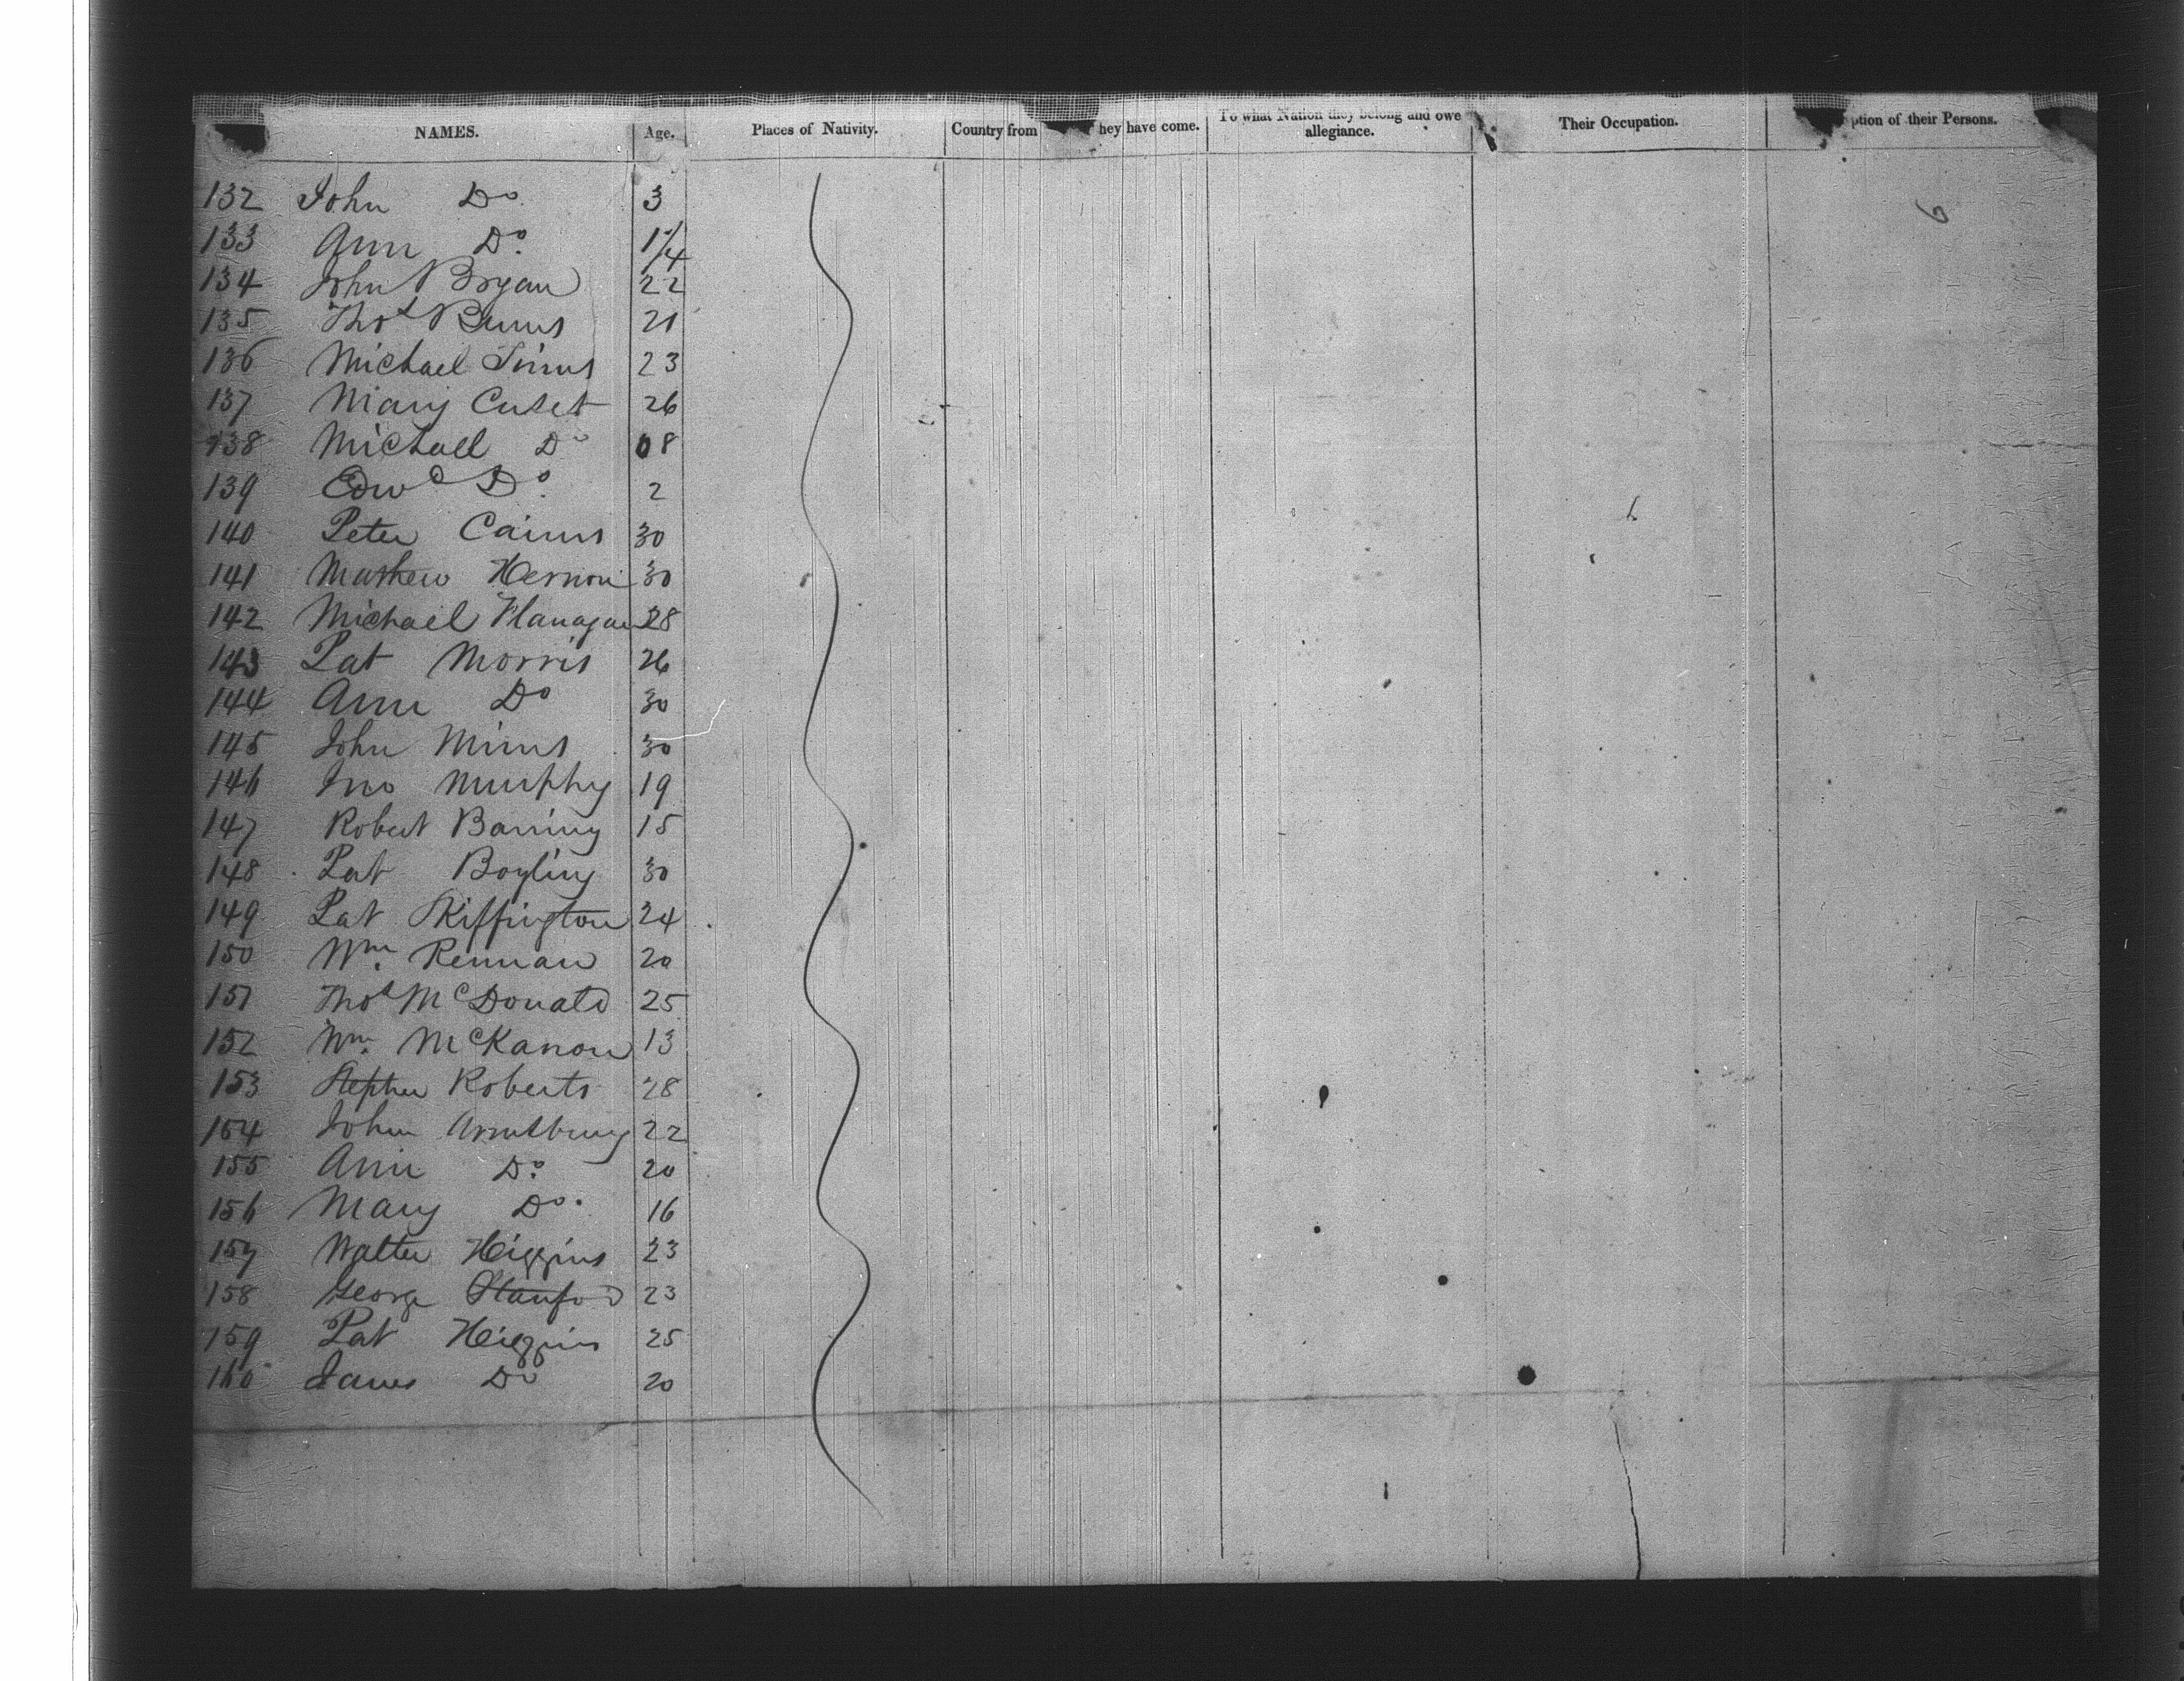 NAMES. Age. Places of Nativity. Country from hey have come. To what Nation they belong and owe allegiance. Their Occupation. ption of their Persons.
132 John Do 3
133 Ann Do. 1 1/4
134 John Bryan 22
135 Thos Burns 21
136 Michael 23
137 Mary 26
138 Michael Do 08
139 Edwd Do. 2
140 Peter Cairns 30
141 Mathew 30
142 Michael Flanagan 28
143 Pat Morris 26
144 Ann Do 30
145 John Mims 30
146 Jno Murphy 19
147 Robert 15
148 Pat Boyling 30
149 Pat Skiffington 24
150 Wm. Rennan 20
151 Thos McDonald 25
152 Wm. McKanon 13
153 Stephen Roberts 28
154 John 22
155 Ann Do. 20
156 Mary Do. 16
157 Walter Higgins 23
158 George Stanford 23
159 Pat Higgins 25
160 James Do 20